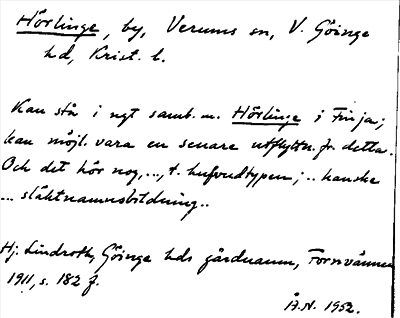 Hörlinge, by, Verums sn, V. Göinge
hd, Krist. l.
Kan stå i ngt samb. m. Hörlinge i Finja;
kan möjl. vara en senare utflyttn. fr. detta.
Och det hör nog, ..., t. hufvudtypen; .. kanske
... släktnamnsbildning ..
Hj. Lindroth, Göinge hds gårdnamn, Fornvännen
1911, s. 182 f.
Å.N. 1952.